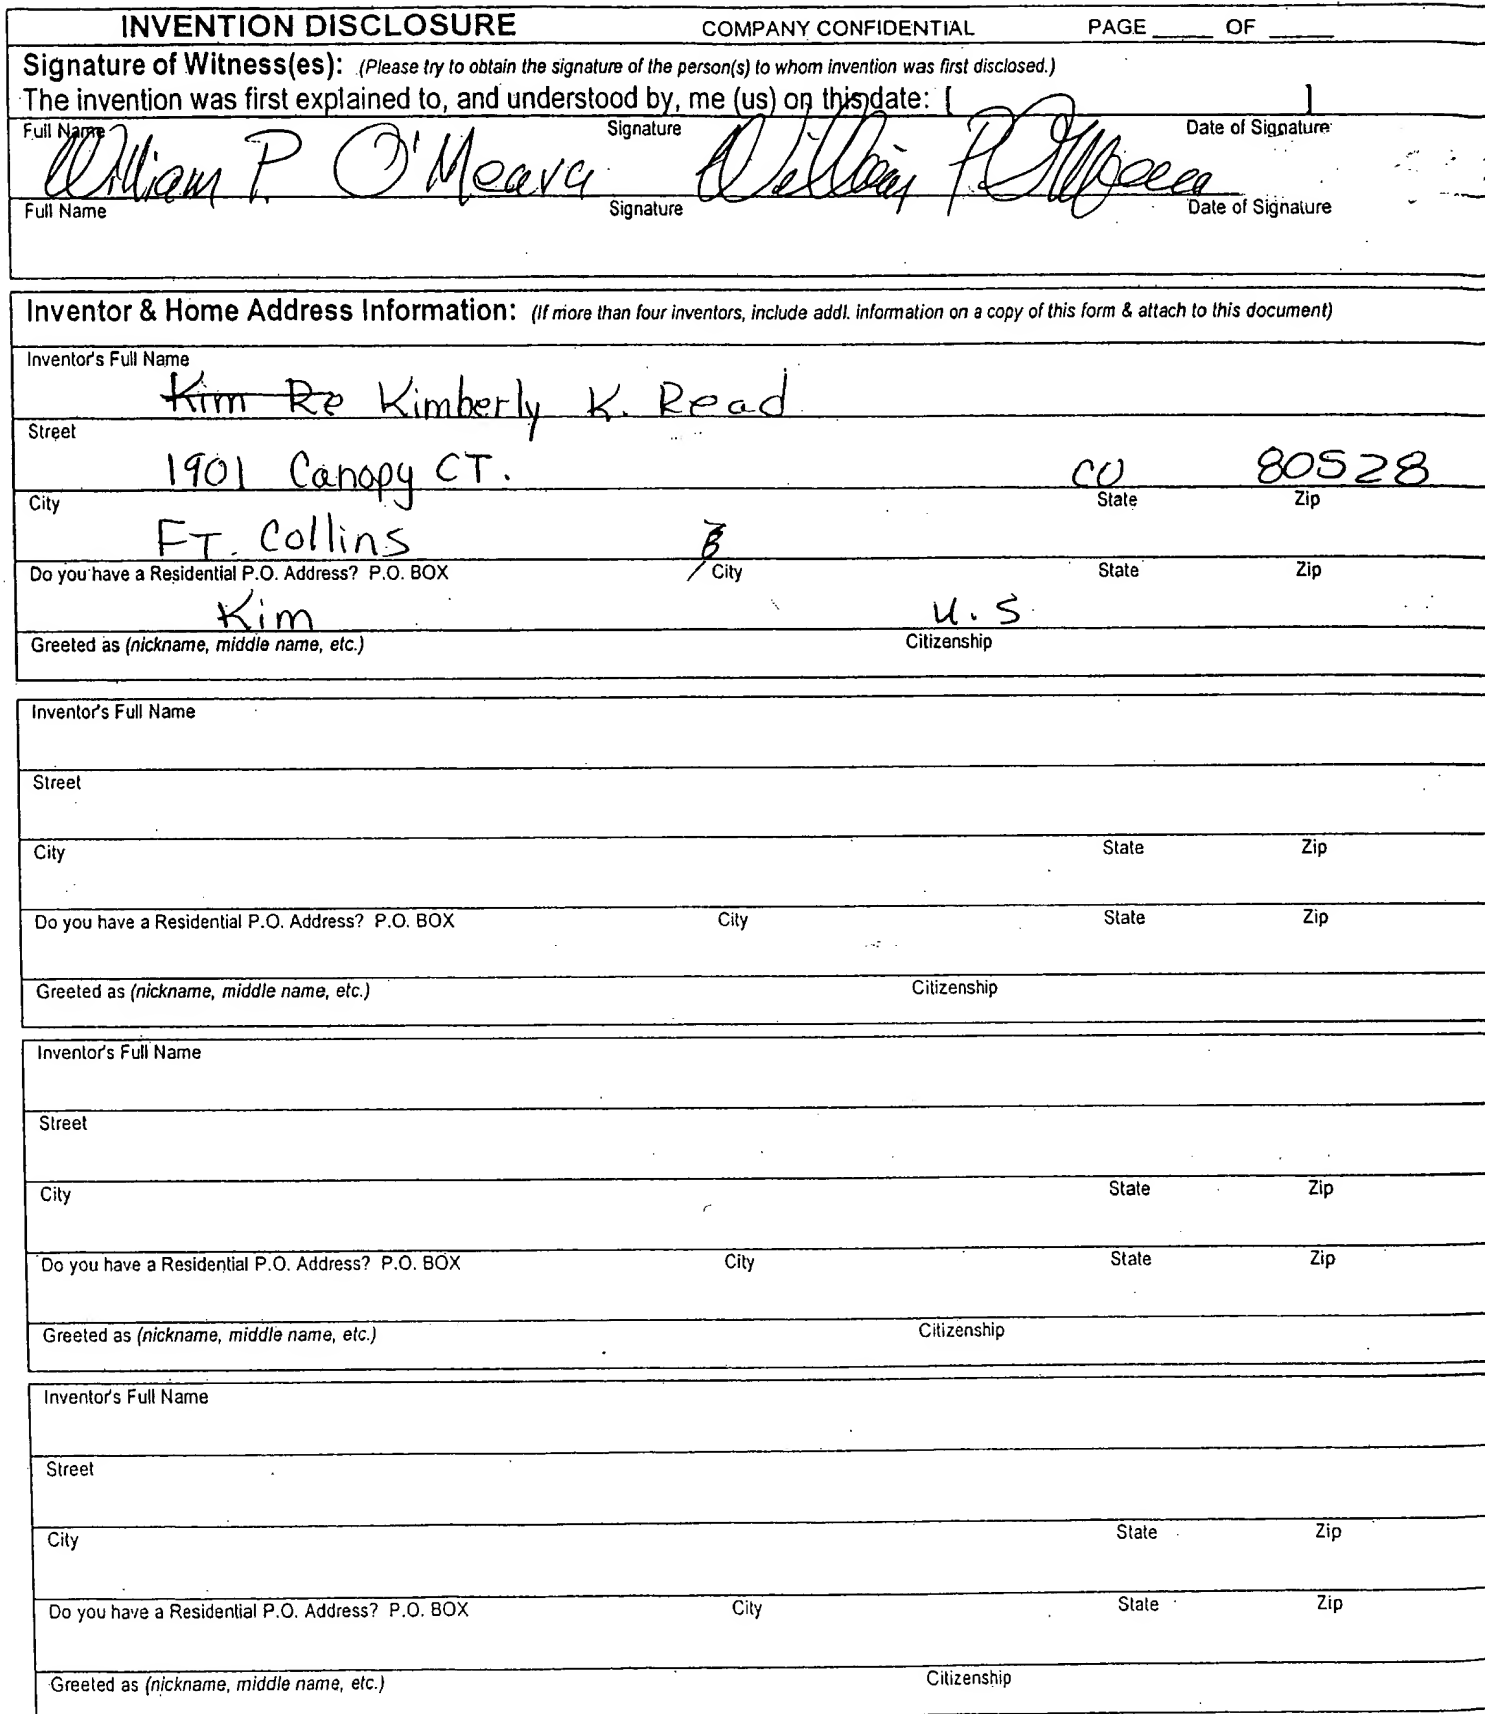 INVENTION DISCLOSURE COMPANY CONFIDENTIAL PAGE ____ OF ____
Signature of Witness(es): (Please try to obtain the signature of the person(s) to whom invention was first disclosed.)
The invention was first explained to, and understood by, me (us) on this date: [ ]
Full Name Signature Date of Signature
William P. O'Meara William P. O'Meara
Full Name Signature Date of Signature
Inventor & Home Address Information: (If more than four inventors, include addl. information on a copy of this form & attach to this document)
Inventor's Full Name
Kim Re Kimberly K. Read
Street
1901 Canopy CT. CO 80528
City State Zip
FT. Collins
Do you have a Residential P.O. Address? P.O. BOX City State Zip
Kim U.S
Greeted as (nickname, middle name, etc.) Citizenship
Inventor's Full Name
Street
City State Zip
Do you have a Residential P.O. Address? P.O. BOX City State Zip
Greeted as (nickname, middle name, etc.) Citizenship
Inventor's Full Name
Street
City State Zip
Do you have a Residential P.O. Address? P.O. BOX City State Zip
Greeted as (nickname, middle name, etc.) Citizenship
Inventor's Full Name
Street
City State Zip
Do you have a Residential P.O. Address? P.O. BOX City State Zip
Greeted as (nickname, middle name, etc.) Citizenship